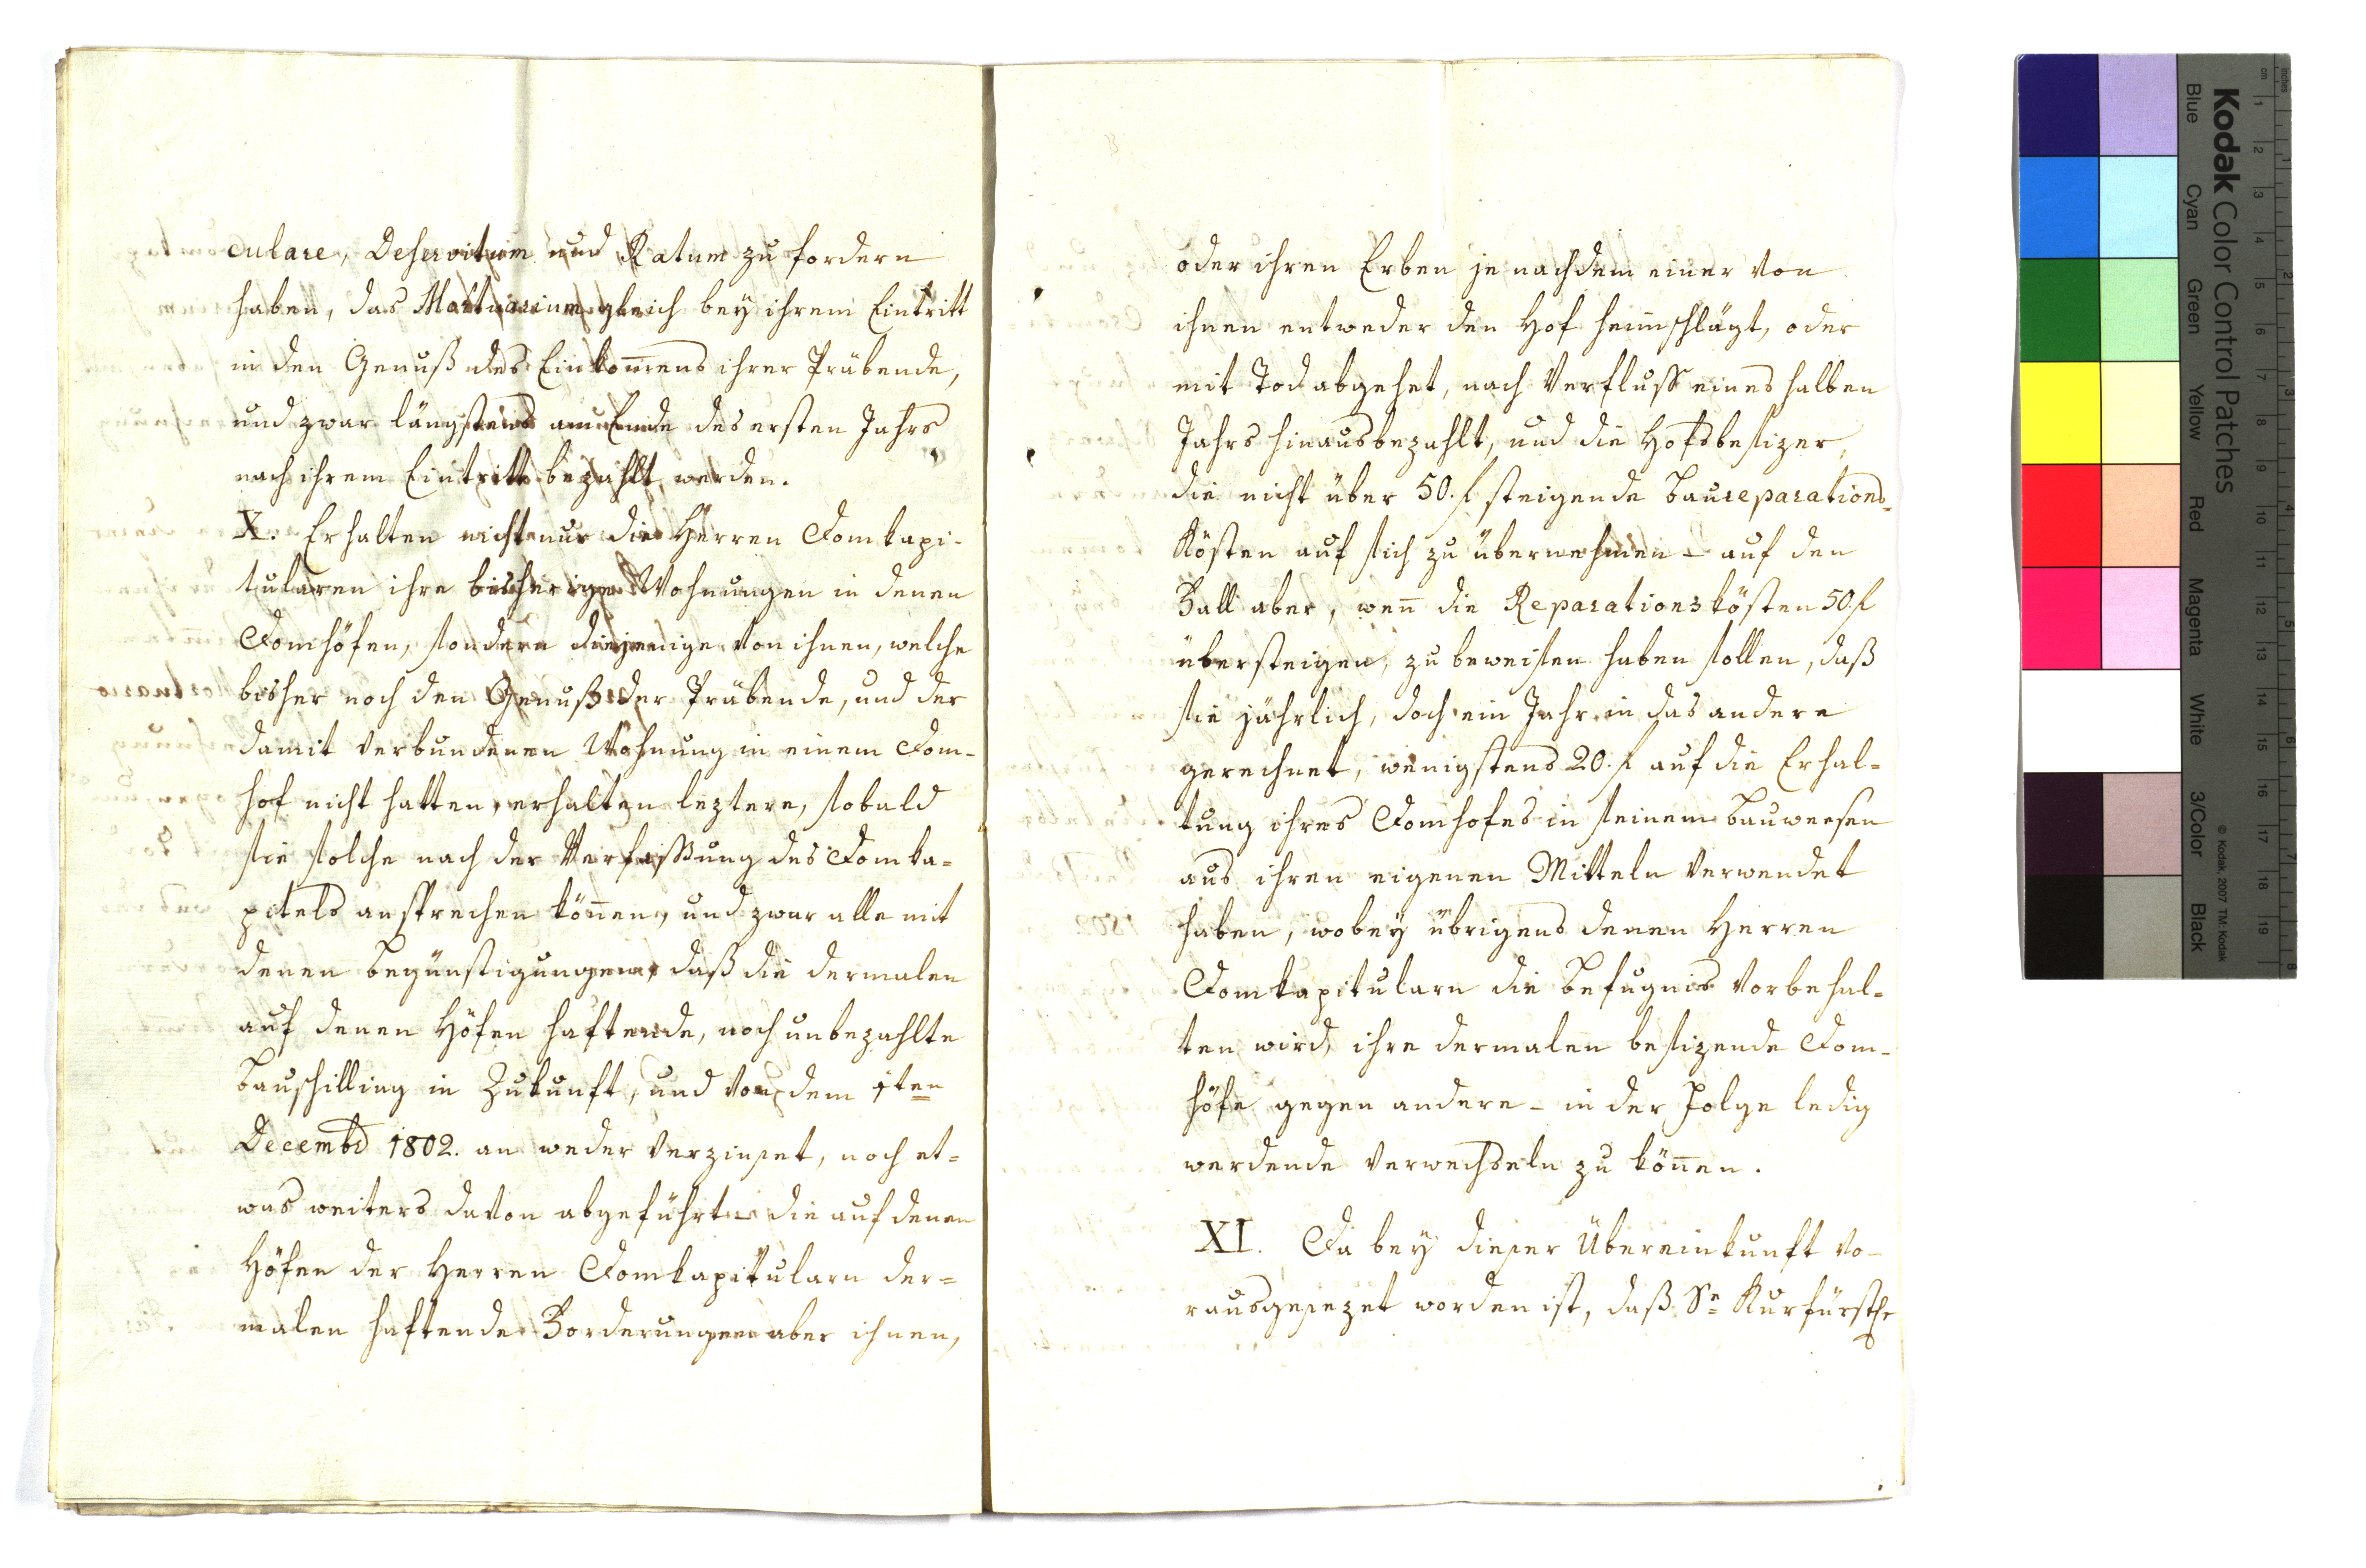 culare, Deservitum und Ratum zu fordern
haben, das Mortuarium gleich bey ihrem Eintritt
in den Genuß des Einkom̅ens ihrer Präbende,
und zwar längstens am Ende des ersten Jahrs
nach ihrem Eintritt bezahlt werden.
X. Erhalten nicht nur die Herren Domkapi-
tularen ihre bisherige Wohnungen in denen
Domhöfen, sondern diejenige von ihnen, welche
bisher noch den Genuß der Präbende, und der
damit verbundenen Wohnung in einem Dom-
hof nicht hatten, erhalten leztere, sobald
sie solche nach der Verfassung des Domka=
pitels ansprechen kön̅en, und zwar alle mit
denen Begünstigungen, daß die dermalen
auf denen Höfen haftende, noch unbezahlte
Bauschilling in Zukunft, und von dem 1ten
Decembr 1802. an weder verzinset, noch et=
was weiters davon abgeführt – die auf denen
Höfen der Herren Domkapitularn der=
malen haftende Forderungen aber ihnen,
oder ihren Erben je nachdem einer von
ihnen entweder den Hof heimschlägt, oder
mit Tod abgehet, nach Verfluss eines halben
Jahrs hinausbezahlt, und die Hofsbesizer,
die nicht über 50. f steigende Baureparations=
Kösten auf sich zu übernehmen – auf den
Fall aber, wen̅ die Reparationskösten 50. f
übersteigen, zu beweisen haben sollen, daß
sie jährlich, doch ein Jahr in das andere
gerechnet, wenigstens 20. f auf die Erhal=
tung ihres Domhofes in seinem Bauwesen
aus ihren eigenen Mitteln verwendet
haben, wobey übrigens denen Herren
Domkapitularn die Befugnis vorbehal=
ten wird, ihre dermalen besizende Dom-
höfe gegen andere – in der Folge ledig
werdende verwechseln zu kön̅en.
XI. Da bey dieser Übereinkunft vo-
rausgesezet worden ist, daß Se Kurfürsthe
Kodak Color Control Patches
Blue Cyan Green Yellow Red Magenta White 3/Color Black
© Kodak, 2007 TM: Kodak
cm 1 2 3 4 5 6 7 8 9 10 11 12 13 14 15 16 17 18 19
inches 1 2 3 4 5 6 7 8